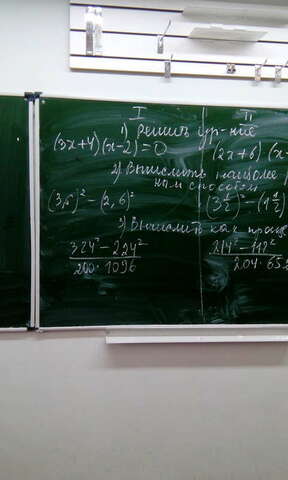 I II
1) Решить ур-ние
(3x+4)(x-2)=0 (2x+6)(x-
2) Вычислить наиболее р
ным способом
(3,6)² - (2,6)² (3 1/2)² - (1 1/2)
3) Вычислить как
324² - 224² / 200·1096 214² - 112² / 204·652